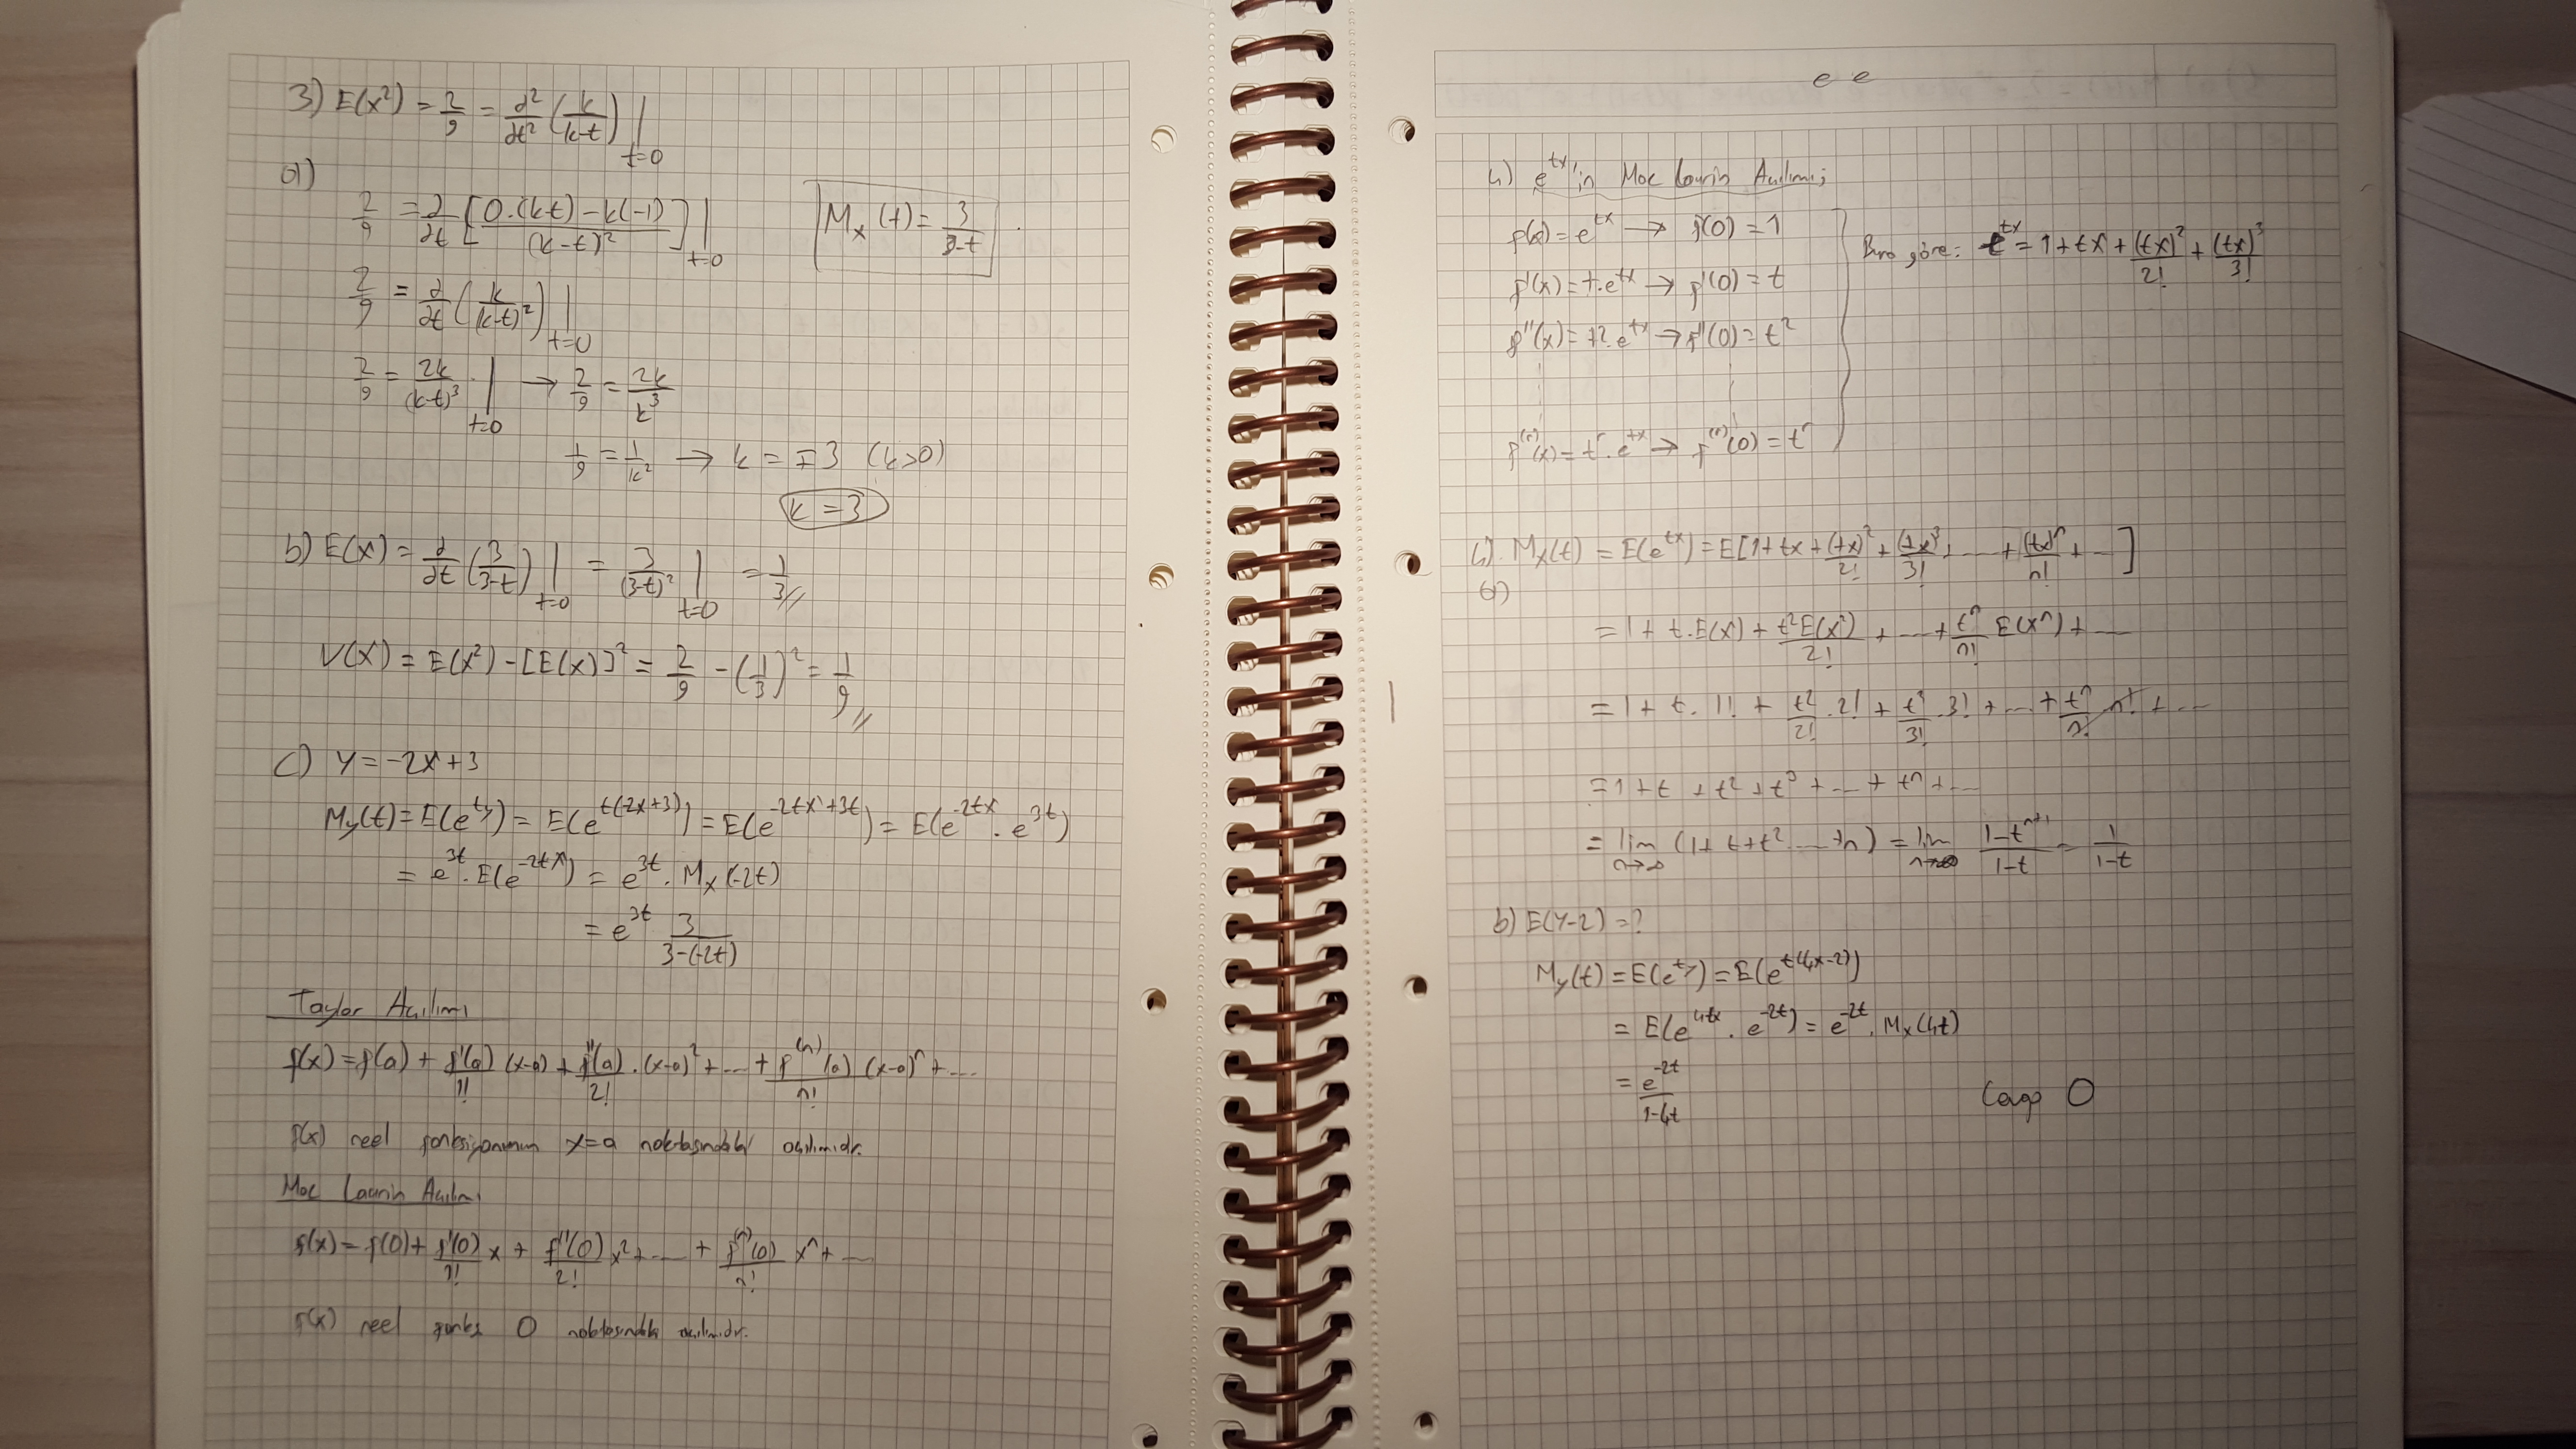 3) E(x²) = 2/9 = ∂²/∂t² (k/(k-t)) |t=0
a)
2/9 = ∂/∂t [(0.(k-t) - k(-1))/(k-t)²] |t=0
Mx(t) = 3/(3-t)
2/9 = ∂/∂t (k/(k-t)²) |t=0
2/9 = 2k/(k-t)³ |t=0 → 2/9 = 2k/k³
1/9 = 1/k² → k = ∓3 (k>0)
k = 3
b) E(x) = ∂/∂t (3/(3-t)) |t=0 = 3/(3-t)² |t=0 = 1/3 //
V(x) = E(x²) - [E(x)]² = 2/9 - (1/3)² = 1/9 //
c) Y = -2x + 3
My(t) = E(e^ty) = E(e^t(-2x+3)) = E(e^-2tx+3t) = E(e^-2tx . e^3t)
= e^3t . E(e^-2tx) = e^3t . Mx(-2t)
= e^3t 3/(3-(-2t))
Taylor Açılımı
f(x) = f(a) + f'(a)/1! (x-a) + f''(a)/2! . (x-a)² + ... + f^(n)(a)/n! (x-a)^n + ...
f(x) reel fonksiyonunun x=a noktasındaki açılımıdır.
Mac Laurin Açılımı
f(x) = f(0) + f'(0)/1! x + f''(0)/2! x² + ... + f^(n)(0)/n! x^n + ...
f(x) reel fonks 0 noktasındaki açılımıdır.
e e
4) e^tx'in Mac Laurin Açılımı;
f(x) = e^tx → f(0) = 1
f'(x) = t.e^tx → f'(0) = t
f''(x) = t².e^tx → f''(0) = t²
f^(n)(x) = t^n . e^tx → f^(n)(0) = t^n
Buna göre: e^tx = 1 + tx + (tx)²/2! + (tx)³/3!
4). Mx(t) = E(e^tx) = E[1 + tx + (tx)²/2! + (tx)³/3! + ... + (tx)^n/n! + ...]
a)
= 1 + t.E(x) + t²E(x²)/2! + ... + t^n/n! E(x^n) + ...
= 1 + t.1! + t²/2! .2! + t³/3! .3! + ... + t^n/n! n! + ...
= 1 + t + t² + t³ + ... + t^n + ...
= lim n→∞ (1 + t + t² ... + n) = lim n→∞ (1-t^n+1)/(1-t) = 1/(1-t)
b) E(Y-2) = ?
My(t) = E(e^ty) = E(e^t(4x-2))
= E(e^4tx . e^-2t) = e^-2t . Mx(4t)
= e^-2t/(1-4t)
Cevap 0